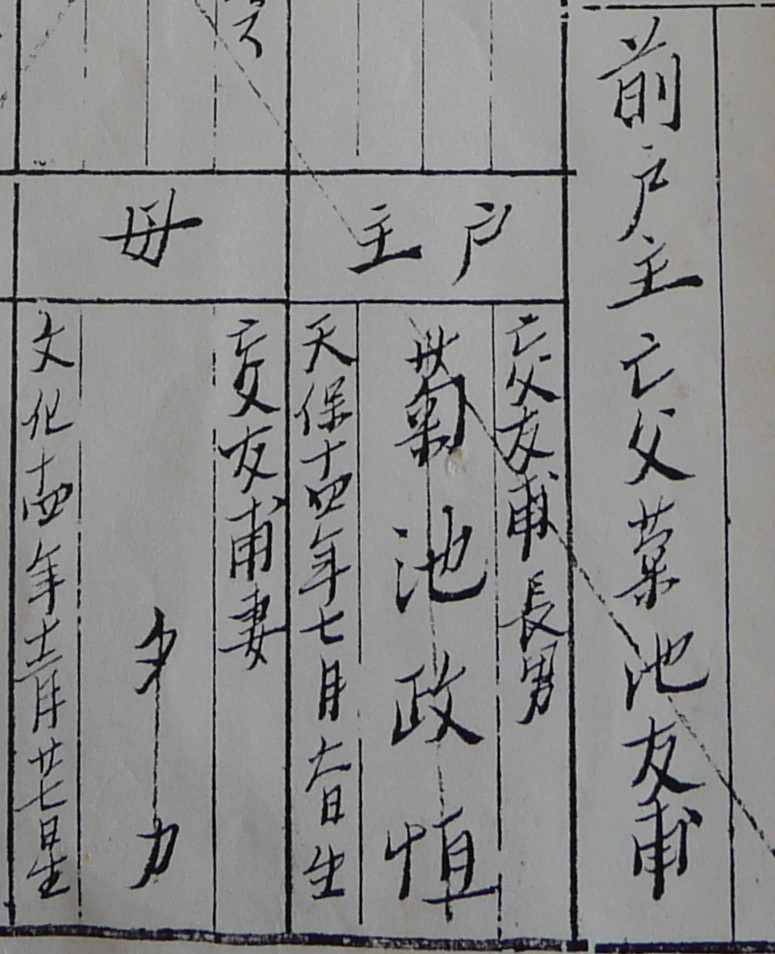 前戸主亡父菊池友甫
戸主
亡父友甫長男
菊池政恒
天保十四年七月六日生
母
亡父友甫妻
タカ
文化十四年十二月廿七日生